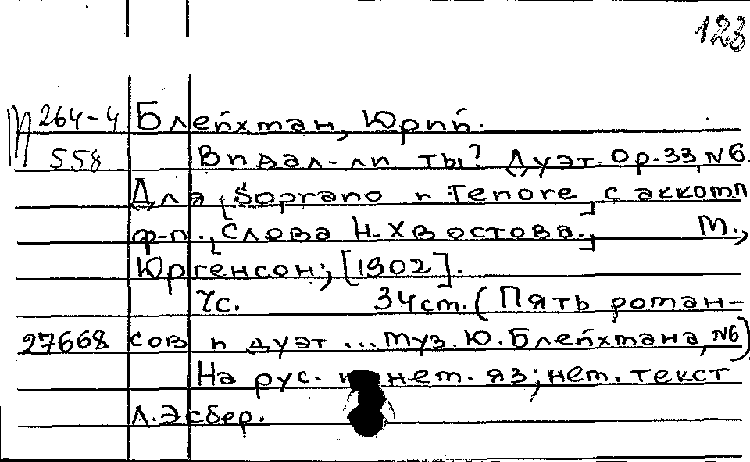 123
264-4 Блейхман, Юрий.
558 Видал-ли ты? Дуэт. Op.33, №6.
Для [Soprano и Tenore] с акком
ф-п., [Слова Н. Хвостова.] М.,
Юргенсон; [1902].
7с. 34cm. (Пять роман-
27668 сов и дуэт ... муз. Ю. Блейхмана, №6)
На рус. и нем. яз; нем. текст
Л. Эсбер.